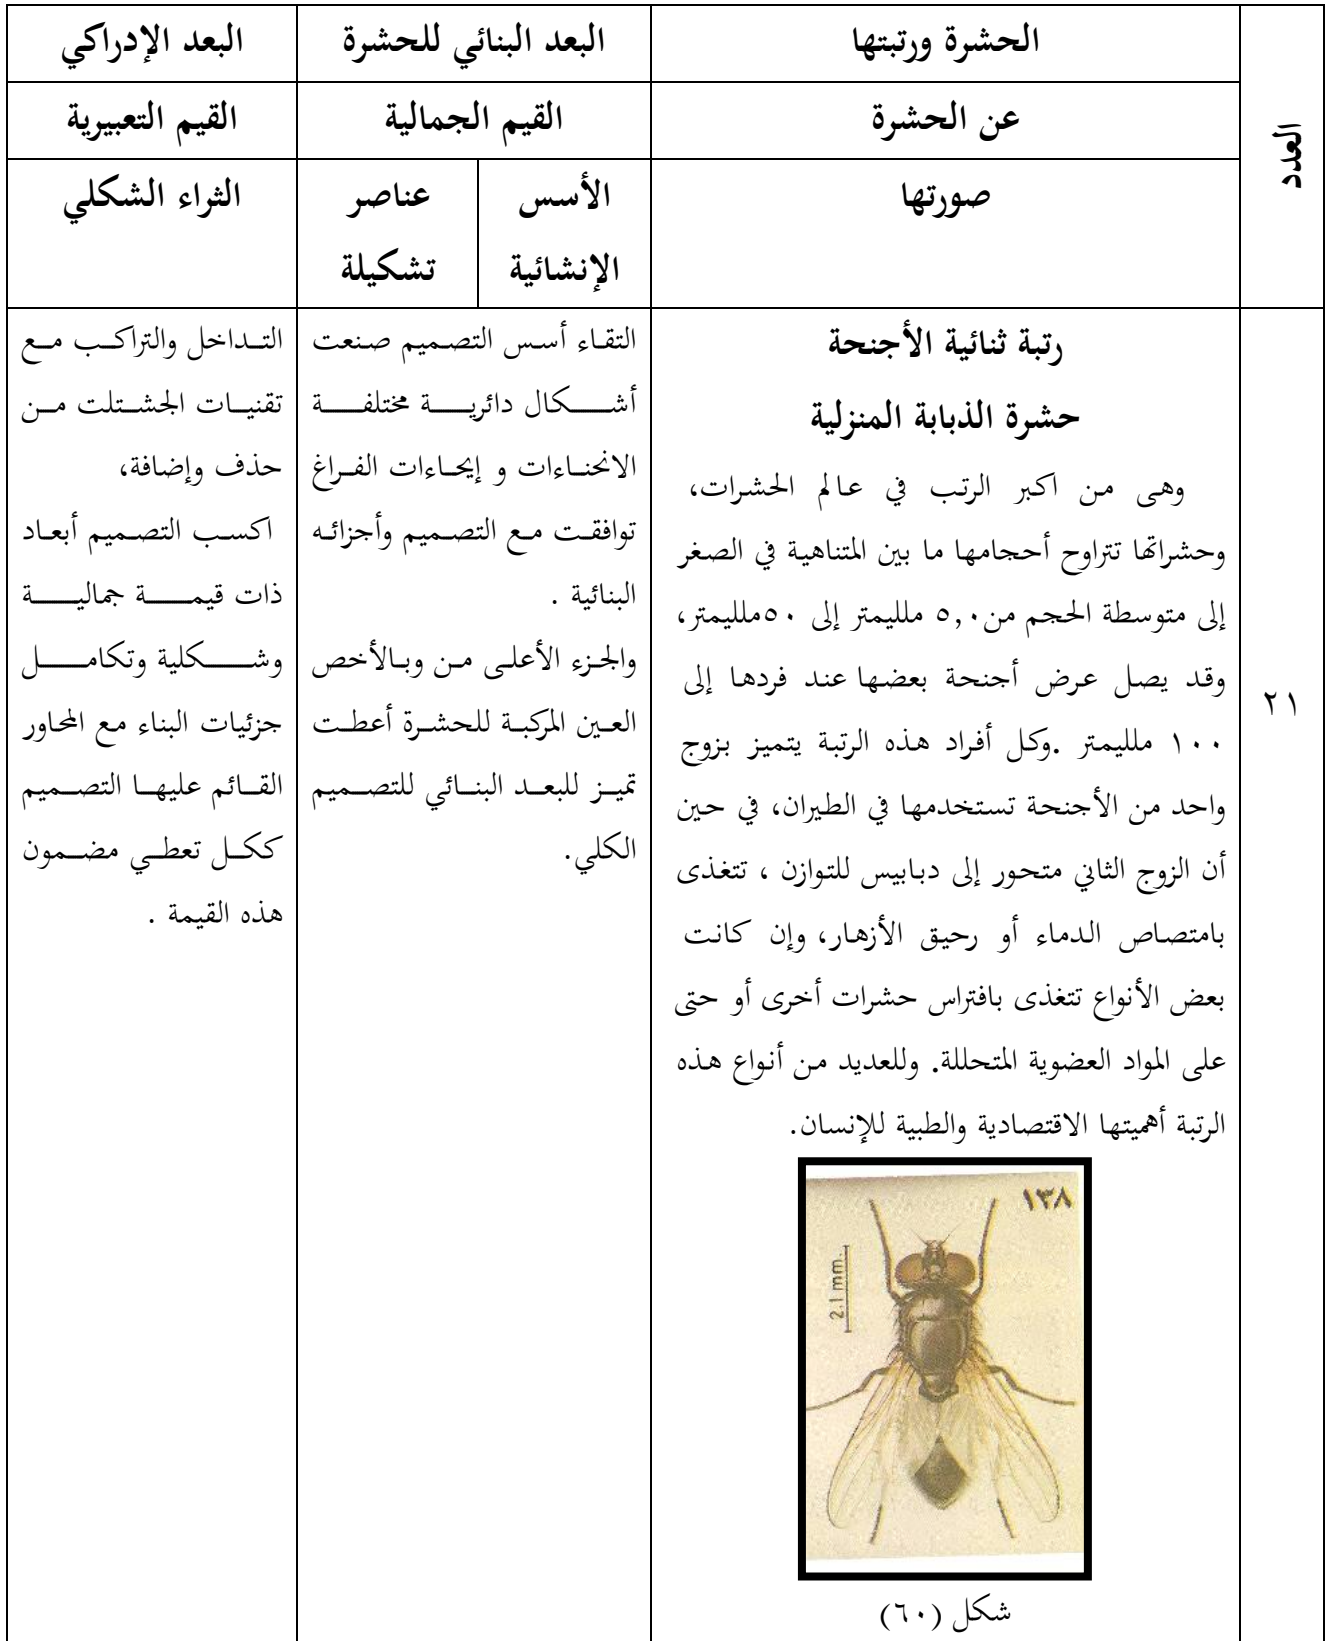 العدد
الحشرة ورتبتها
البعد البنائي للحشرة
البعد الإدراكي
عن الحشرة
القيم الجمالية
القيم التعبيرية
صورتها
الأسس
الإنشائية
عناصر
تشكيلة
الثراء الشكلي
٢١
رتبة ثنائية الأجنحة
حشرة الذبابة المنزلية
وهى من اكبر الرتب في عالم الحشرات،
وحشراتها تتراوح أحجامها ما بين المتناهية في الصغر
إلى متوسطة الحجم من٥,٠ ملليمتر إلى ٥٠ملليمتر،
وقد يصل عرض أجنحة بعضها عند فردها إلى
١٠٠ ملليمتر .وكل أفراد هذه الرتبة يتميز بزوج
واحد من الأجنحة تستخدمها في الطيران، في حين
أن الزوج الثاني متحور إلى دبابيس للتوازن ، تتغذى
بامتصاص الدماء أو رحيق الأزهار، وإن كانت
بعض الأنواع تتغذى بافتراس حشرات أخرى أو حتى
على المواد العضوية المتحللة. وللعديد من أنواع هذه
الرتبة أهميتها الاقتصادية والطبية للإنسان.
١٣٨
2.1 mm.
شكل (٦٠)
التقاء أسس التصميم صنعت
أشكال دائرية مختلفة
الانحناءات و إيحاءات الفراغ
توافقت مع التصميم وأجزائه
البنائية .
والجزء الأعلى من وبالأخص
العين المركبة للحشرة أعطت
تميز للبعد البنائي للتصميم
الكلي.
التداخل والتراكب مع
تقنيات الجشتلت من
حذف وإضافة،
اكسب التصميم أبعاد
ذات قيمة جمالية
وشكلية وتكامل
جزئيات البناء مع المحاور
القائم عليها التصميم
ككل تعطي مضمون
هذه القيمة .